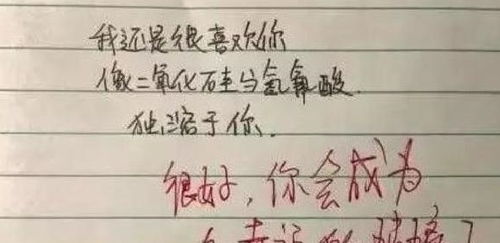 我还是很喜欢你
像二氧化硅与氢氟酸
独溶于你.
很好,你会成为